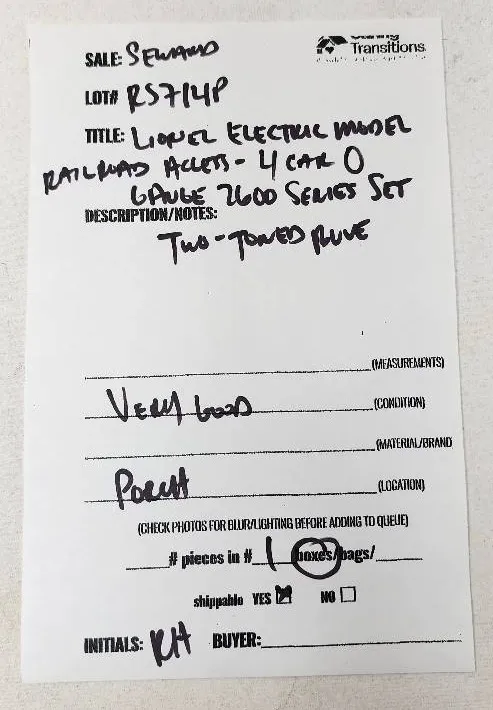 Transitions
SALE: SEWARD
LOT# RS714P
TITLE: LIONEL ELECTRIC MODEL
RAILROAD ACCETS - 4 CAR O
GAUGE 2600 SERIES SET
DESCRIPTION/NOTES:
TWO-TONED BLUE
(MEASUREMENTS)
VERY GOOD (CONDITION)
(MATERIAL/BRAND
PORCH (LOCATION)
(CHECK PHOTOS FOR BLUR/LIGHTING BEFORE ADDING TO QUEUE)
# pieces in # 1 boxes/bags/
shippable YES NO
INITIALS: RH BUYER: